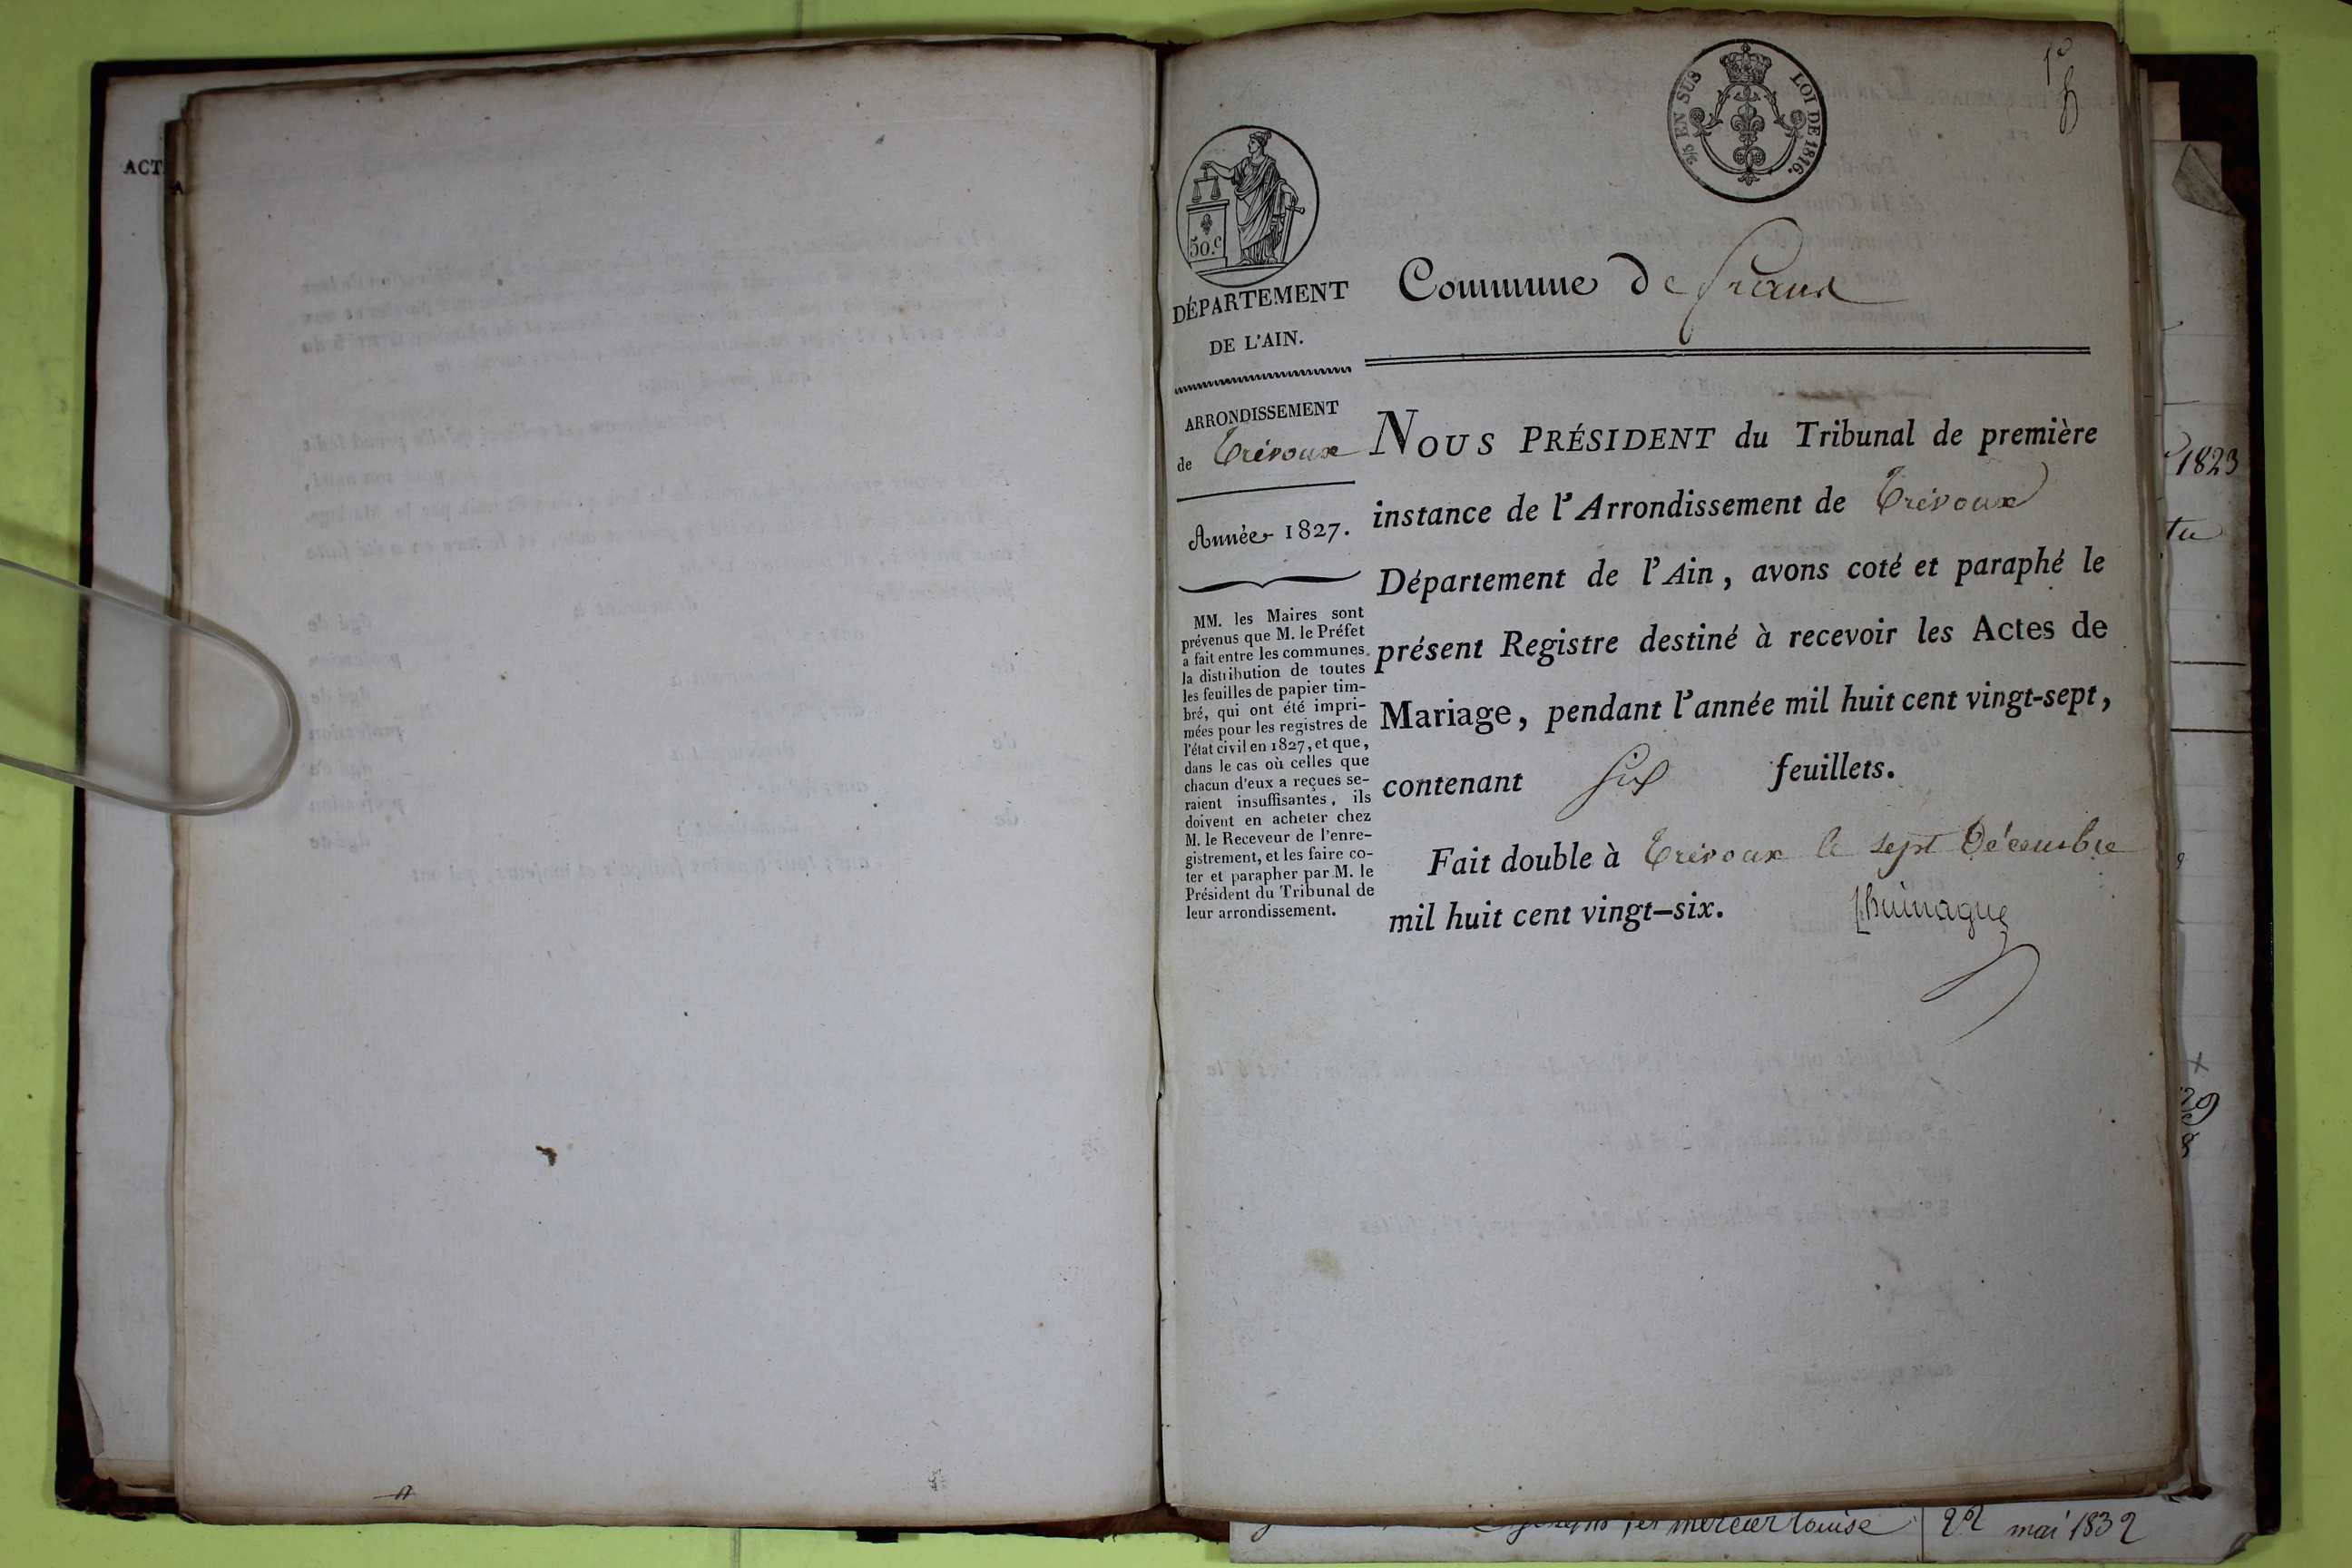 ACT
A
1º
2/5 EN SUS LOI DE 1816.
50.c
DÉPARTEMENT
DE L'AIN.
Commune de Frans
ARRONDISSEMENT
de Trévoux
Année 1827.
MM. les Maires sont
prévenus que M. le Préfet
a fait entre les communes
la distribution de toutes
les feuilles de papier tim-
bré, qui ont été impri-
mées pour les registres de
l'état civil en 1827, et que,
dans le cas où celles que
chacun d'eux a reçues se-
raient insuffisantes, ils
doivent en acheter chez
M. le Receveur de l'enre-
gistrement, et les faire co-
ter et parapher par M. le
Président du Tribunal de
leur arrondissement.
NOUS PRÉSIDENT du Tribunal de première
instance de l'Arrondissement de Trévoux
Département de l'Ain, avons coté et paraphé le
présent Registre destiné à recevoir les Actes de
Mariage, pendant l'année mil huit cent vingt-sept,
contenant six feuillets.
Fait double à Trévoux le sept Décembre
mil huit cent vingt-six.
1823
mercier Louise 22 mai 1832